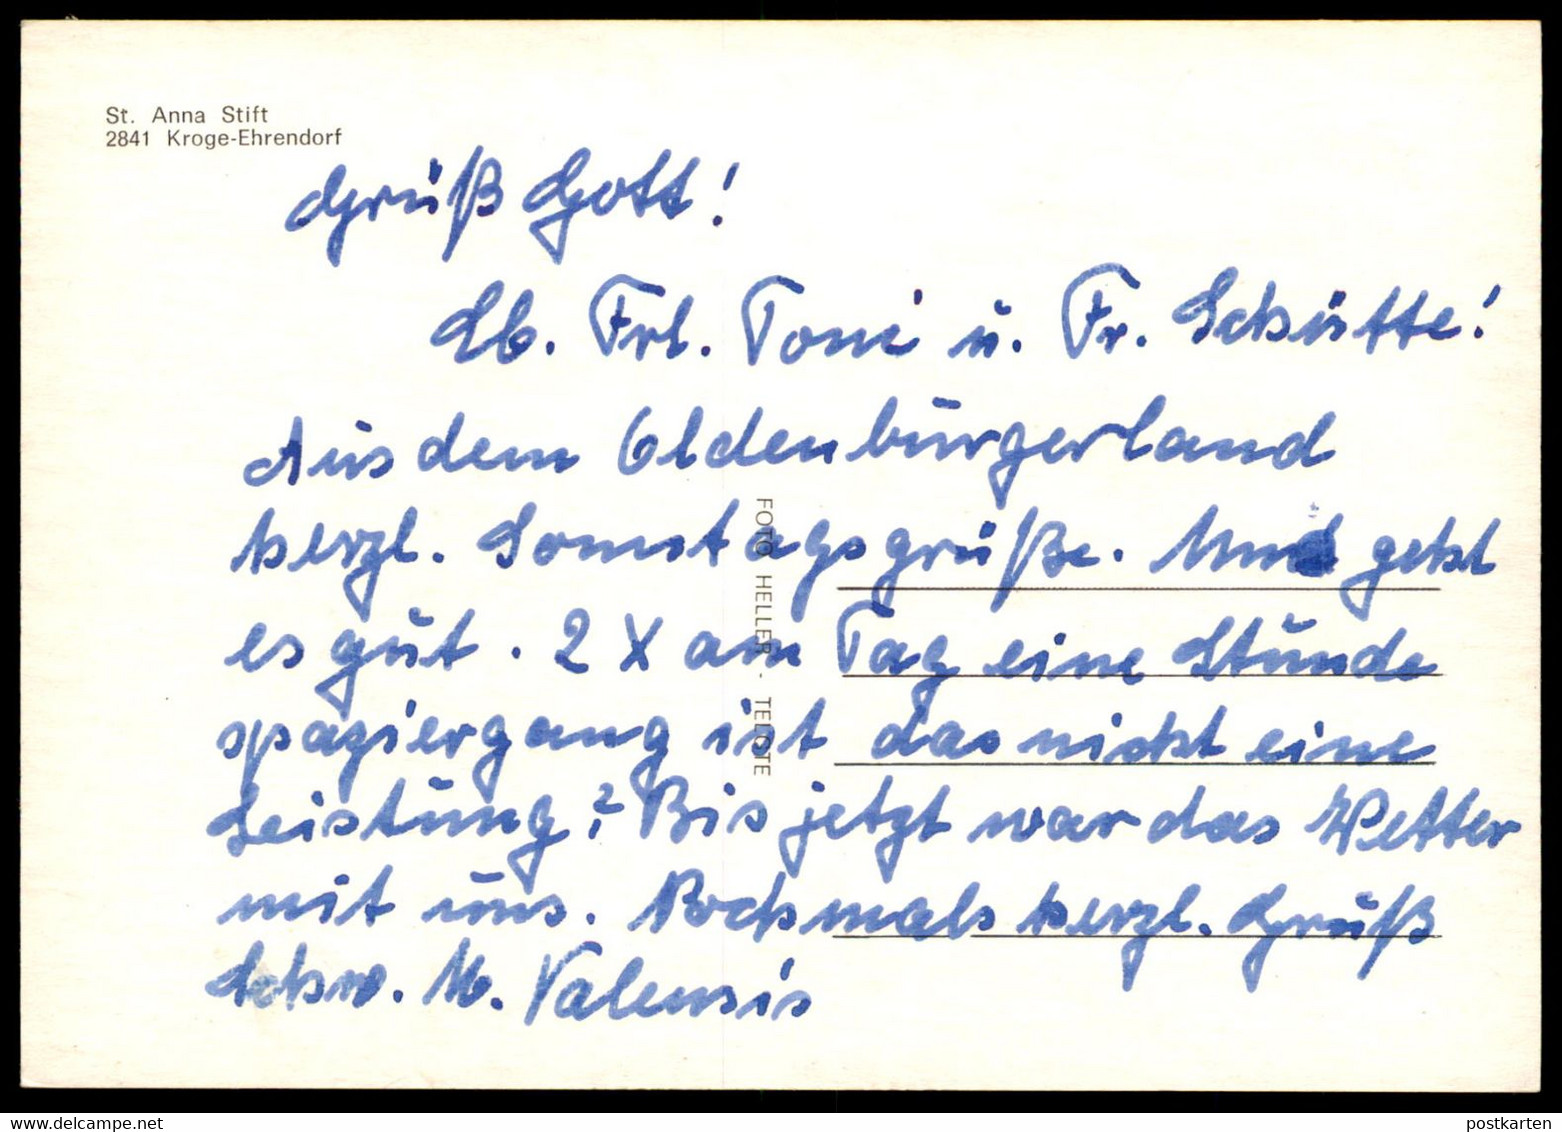 St. Anna Stift
2841 Kroge-Ehrendorf
Grüß Gott!
Lb. Frl. Toni u. Fr. Schütte!
Aus dem Oldenburgerland
herzl. Sonnstagsgrüße. Uns geht
es gut. 2 X am Tag eine Stunde
spaziergang ist das nicht eine
Leistung? Bis jetzt war das Wetter
mit uns. Nochmals herzl. Gruß
Schw. M. Valensis
FOTO HELLER - TELGTE
postkarten